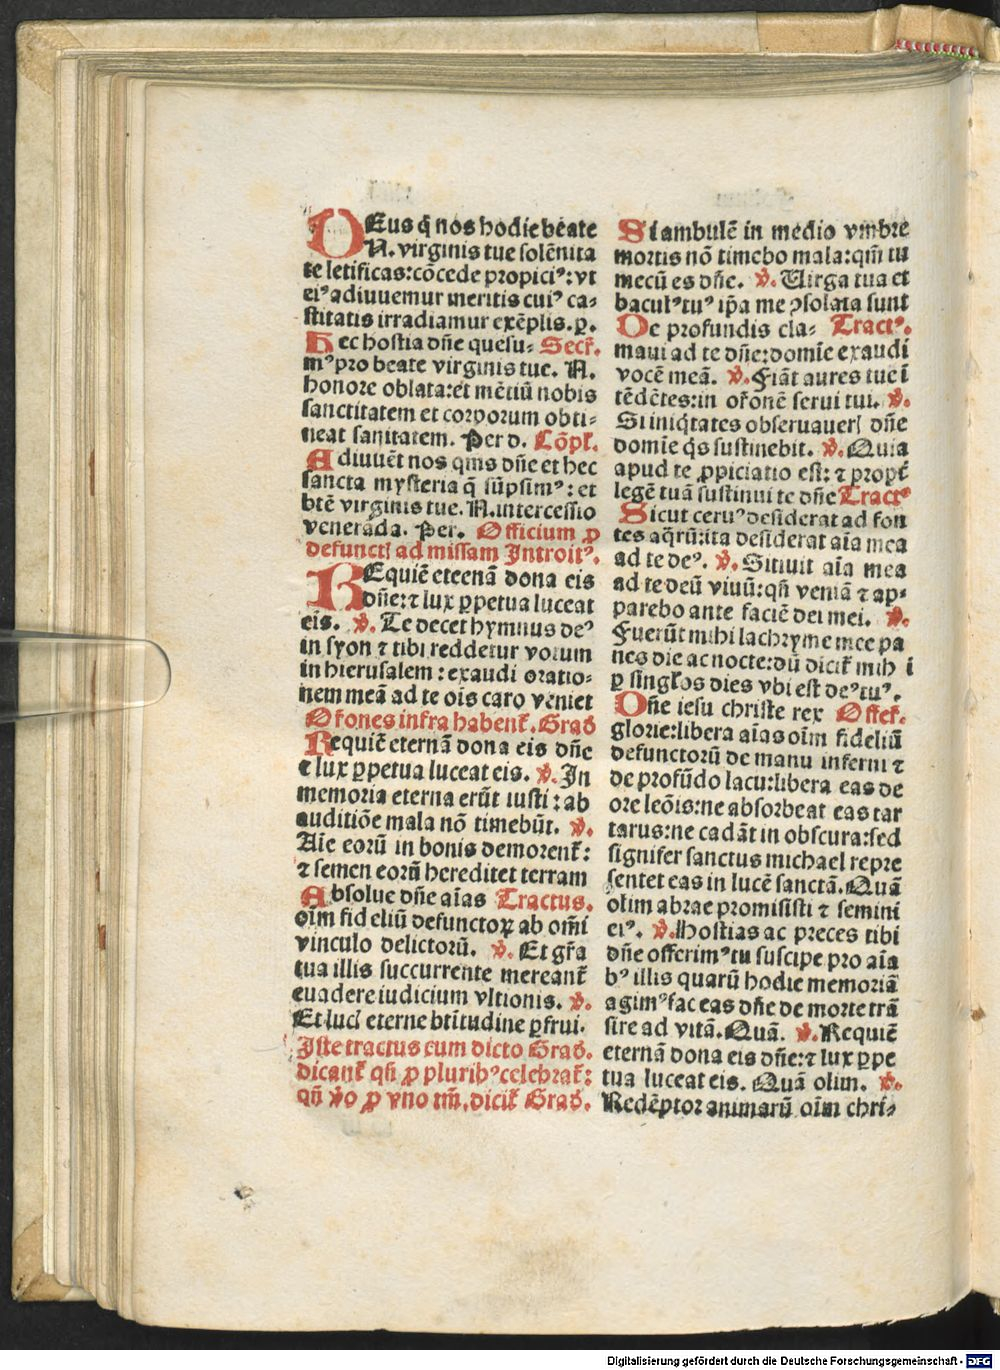 DEus q̃ nos hodie beate
N. virginis tue solẽnita
te letificas: cõcede propiciꝰ: vt
eiꝰ adiuuemur meritis cuiꝰ ca⸗
stitatis irradiamur exẽplis. ꝑ.
Hec hostia dñe quesu⸗ Secr̃.
mꝰ pro beate virginis tue. N.
honore oblata: et mẽtiũ nobis
sanctitatem et corporum obti⸗
neat sanitatem. Per d. Cõpl̃.
Adiuuẽt nos qm̃s dñe et hec
sancta mysteria q̃ sũpsimꝰ: et
btẽ virginis tue. N. intercessio
venerãda. Per. Officium ꝓ
defunctꝭ ad missam Introitꝰ.
REquiẽ eteenã dona eis
dñe: ⁊ lux ꝑpetua luceat
eis. ℣. Te decet hymnus deꝰ
in syon ⁊ tibi reddetur votum
in hierusalem: exaudi oratio⸗
nem meã ad te ois caro veniet
Or̃ones infra habent̃. Grad̃
Requiẽ eternã dona eis dñe
⁊ lux ꝑpetua luceat eis. ℣. In
memoria eterna erũt iusti: ab
auditiõe mala nõ timebũt. ℣.
Aĩe eorũ in bonis demorent̃:
⁊ semen eorũ hereditet terram
Absolue dñe aĩas Tractus.
oĩm fideliũ defunctoꝝ ab om̃i
vinculo delictorũ. ℣. Et gr̃a
tua illis succurrente mereant̃
euadere iudicium vltionis. ℣.
Et lucꝭ eterne btĩtudine ꝑfrui.
Iste tractus cum dicto Grad̃.
dicant̃ qñ ꝓ pluribꝰ celebrat̃:
qñ v̊o ꝓ vno tm̃, dicit̃ Grad̃.
Si ambulẽ in medio vmbre
mortis nõ timebo mala: qm̃ tu
mecũ es dñe. ℣. Uirga tua et
baculꝰ tuꝰ ip̃a me ꝯsolata sunt
De profundis cla⸗ Tractꝰ.
maui ad te dñe: domĩe exaudi
vocẽ meã. ℣. Fiãt aures tue ĩ
tẽdẽtes: in or̃onẽ serui tui. ℣.
Si iniq̃tates obseruauerꝭ dñe
domĩe q̃s sustinebit. ℣. Quia
apud te ꝓpiciatio est: ⁊ ꝓpt̃
legẽ tuã sustinui te dñe Tractꝰ
Sicut ceruꝰ desiderat ad fon
tes aq̃rũ: ita desiderat aĩa mea
ad te deꝰ. ℣. Sitiuit aĩa mea
ad te deũ viuũ: qñ veniã ⁊ ap⸗
parebo ante faciẽ dei mei. ℣.
Fuerũt mihi lachryme mee pa
nes die ac nocte: dũ dicit̃ mihi
ꝑ singl̃os dies vbi est deꝰ tuꝰ.
Dñe iesu christe rex Offer̃.
glorie: libera aĩas oĩm fideliũ
defunctorũ de manu inferni ⁊
de profũdo lacu: libera eas de
ore leõis: ne absorbeat eas tar
tarus: ne cadãt in obscura: sed
signifer sanctus michael repre
sentet eas in lucẽ sanctã. Quã
olim abrae promisisti ⁊ semini
eiꝰ. ℣. Hostias ac preces tibi
dñe offerimꝰ tu suscipe pro aĩa
bꝰ illis quarũ hodie memoriã
agimꝰ fac eas dñe de morte trã
sire ad vitã. Quã. ℣. Requiẽ
eternã dona eis dñe: ⁊ lux ꝑpe
tua luceat eis. Quã olim. ℣.
Redẽptor animarũ oĩm chri⸗
Digitalisierung gefördert durch die Deutsche Forschungsgemeinschaft - DFG